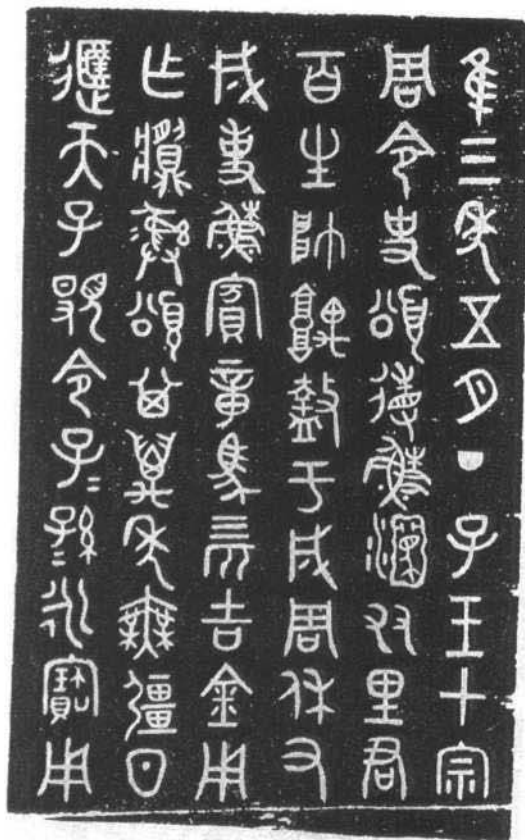 隹三年五月丁子王才宗
周令史頌省穌友里君
百生帥堣盩于成周休又
成事穌賓章馬四匹吉金用
乍䵼彝頌其萬年無疆日
遟天子覭令子=孫=永寶用